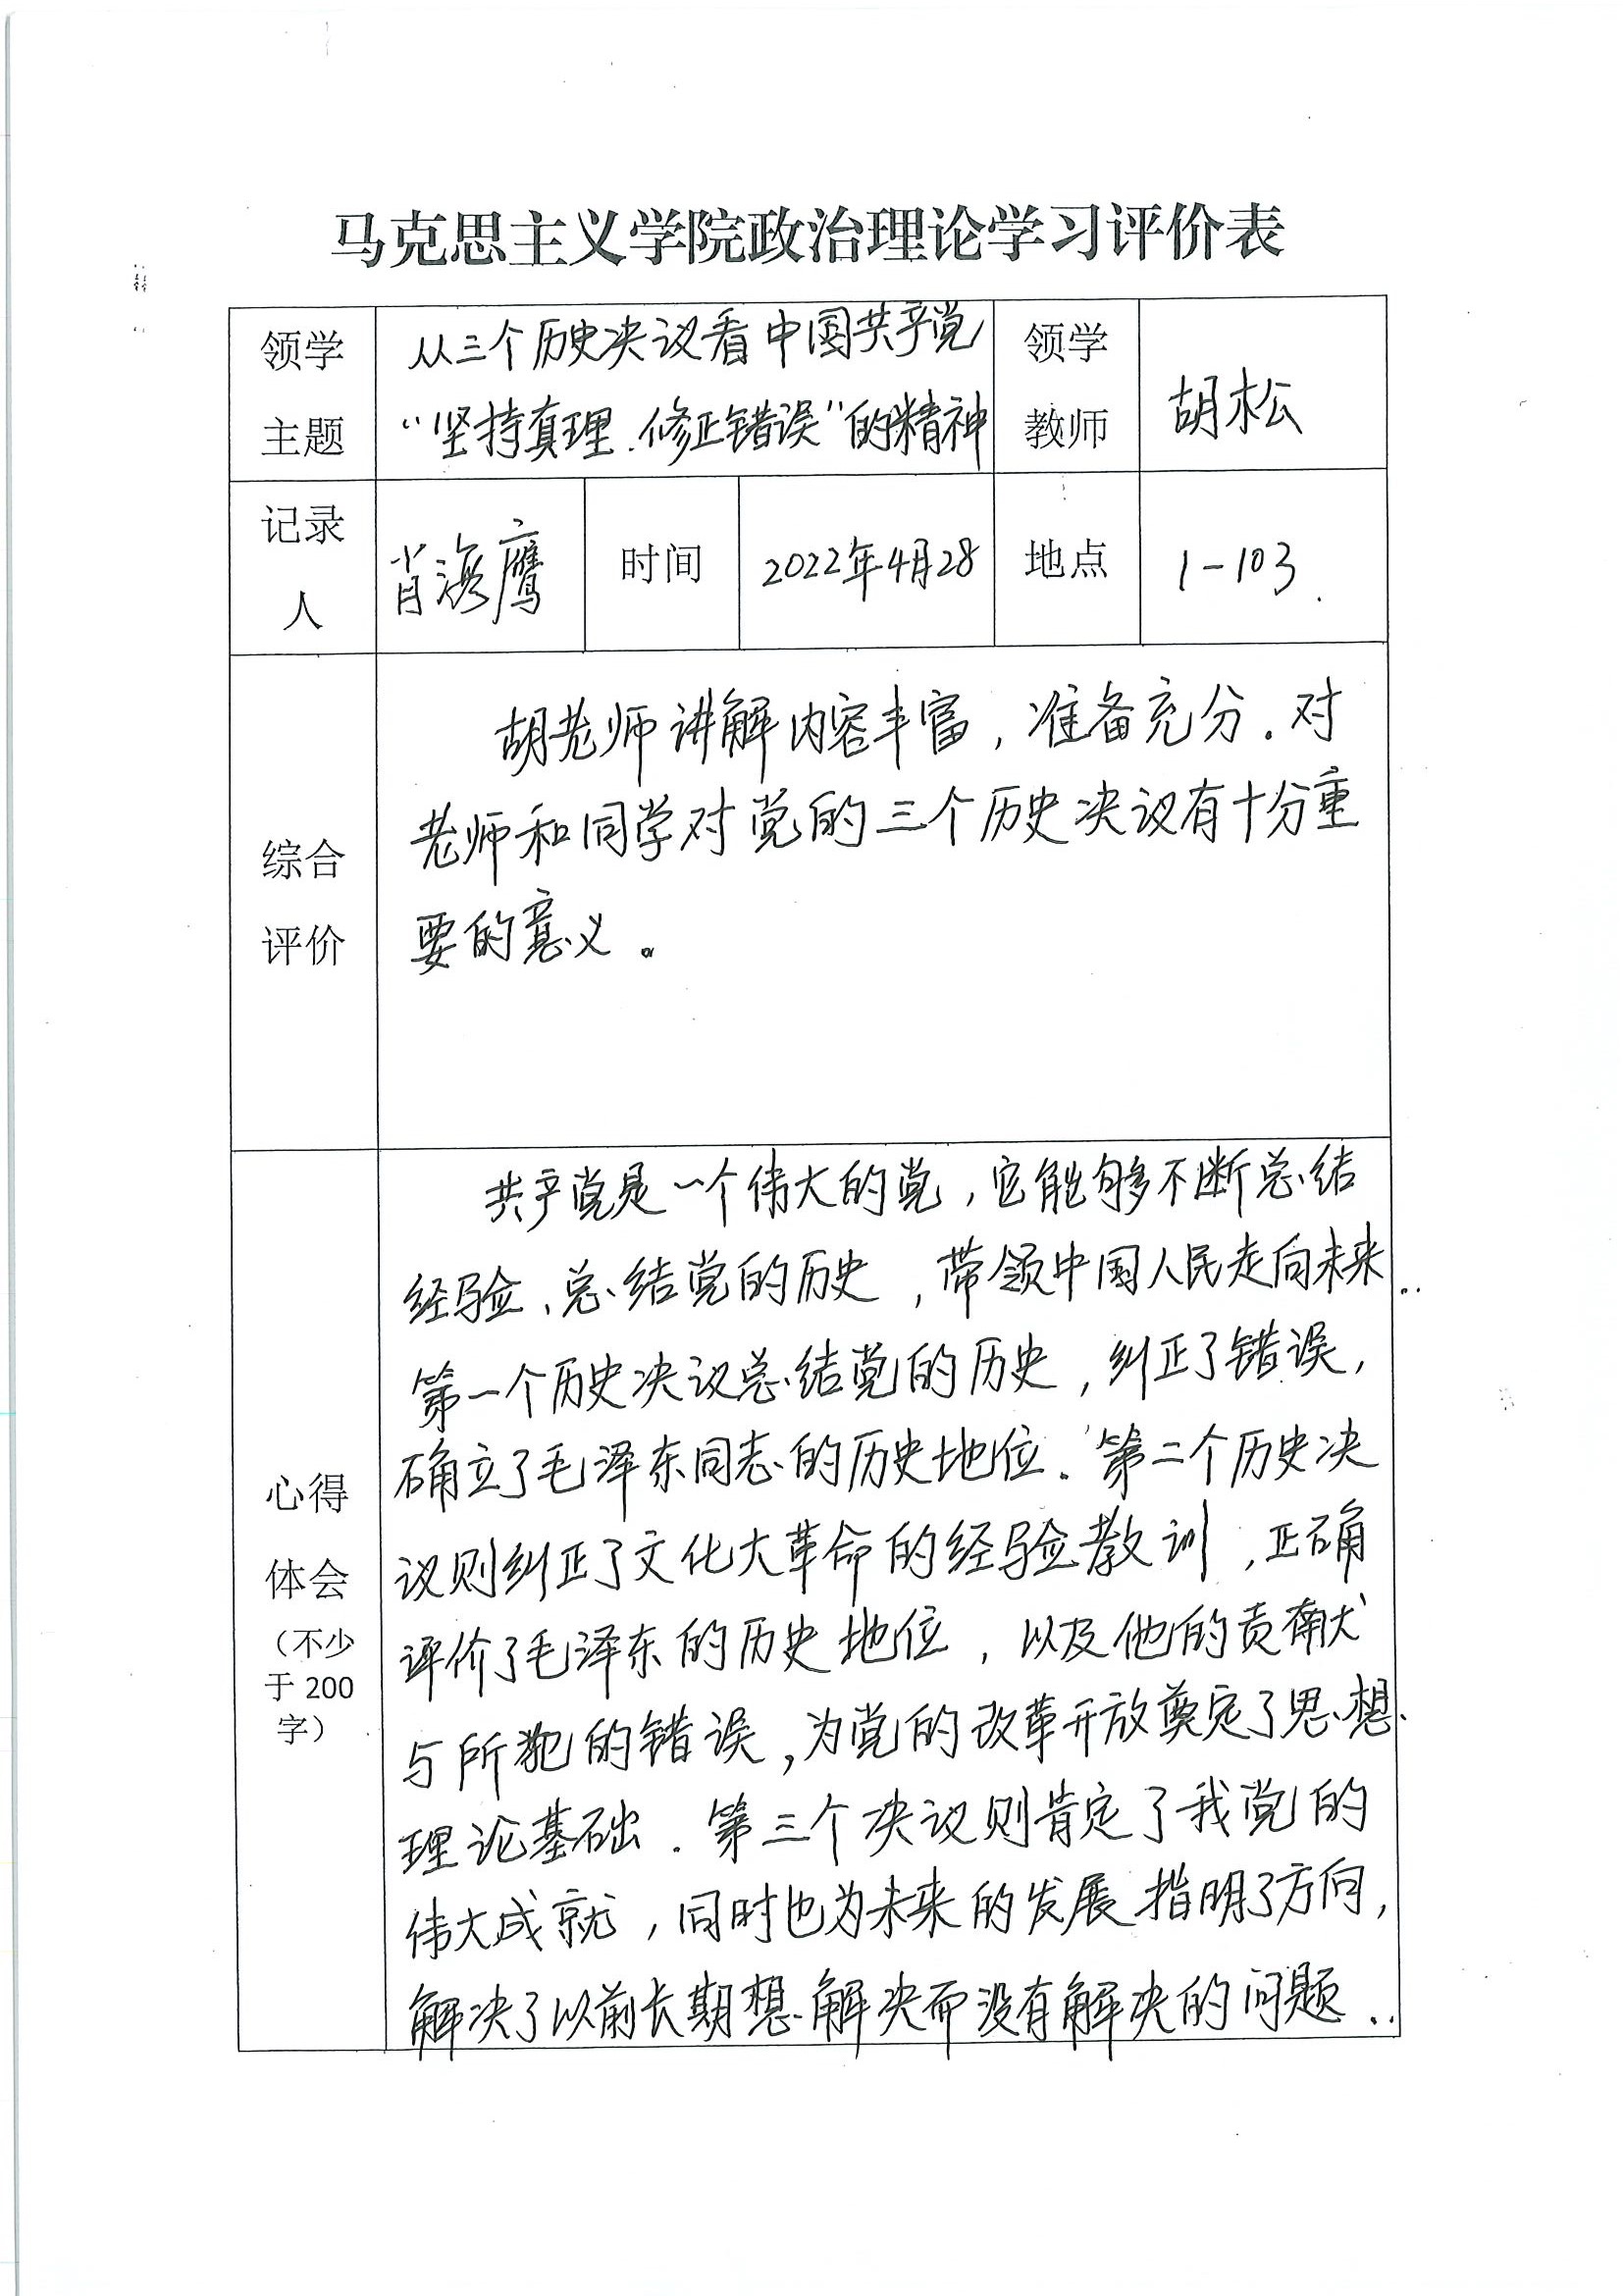 马克思主义学院政治理论学习评价表
领学
主题
从三个历史决议看中国共产党
“坚持真理、修正错误”的精神
领学
教师
胡松
记录
人
肖海鹰
时间
2022年4月28
地点
1-103.
综合
评价
胡老师讲解内容丰富，准备充分.对
老师和同学对党的三个历史决议有十分重
要的意义。
心得
体会
（不少
于200
字）
共产党是一个伟大的党，它能够不断总结
经验、总结党的历史，带领中国人民走向未来..
第一个历史决议总结党的历史，纠正了错误，
确立了毛泽东同志的历史地位.第二个历史决
议则纠正了文化大革命的经验教训，正确
评价了毛泽东的历史地位，以及他的贡献
与所犯的错误，为党的改革开放奠定了思想、
理论基础.第三个决议则肯定了我党的
伟大成就，同时也为未来的发展指明了方向，
解决了以前长期想解决而没有解决的问题..